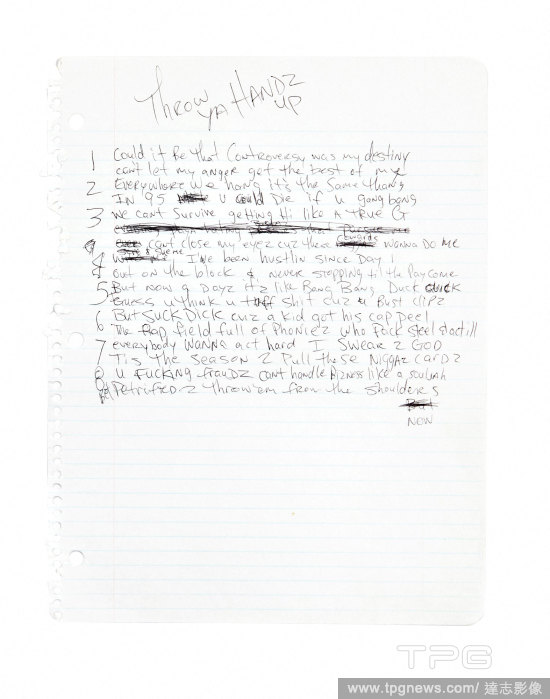 Throw Handz
Ya Up
1 Could it Be that Controversy was my destiny
cant let my anger get the best of me
2 Everywhere we hang it's the Same thang
In 95 u Could Die if u gang bang
3 we cant Survive getting Hi like a TRUE G
cant close my eyez cuz these wanna DO ME
4 I've been hustlin since Day 1
out on the block & never stopping til the Pay come
5 But now a Dayz itz like Bang Bang Duck
Guess u think u tuff shit cuz u Bust Clipz
6 But SUCK DICK cuz a kid got his cap peel
The Rap field full of Phoniez who Pack Steel &
7 everybody wanna act hard I SWEAR 2 GOD
Tis the Season 2 Pull these Niggaz Cardz
8 U FUCKING fraudz cant handle Bizness like a
Petrified 2 throw 'em from the Shoulders
NEW
TPG
www.tpgnews.com/ 達志影像